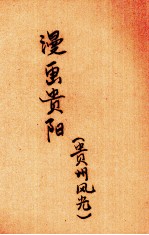 漫画贵阳
(贵州风光)